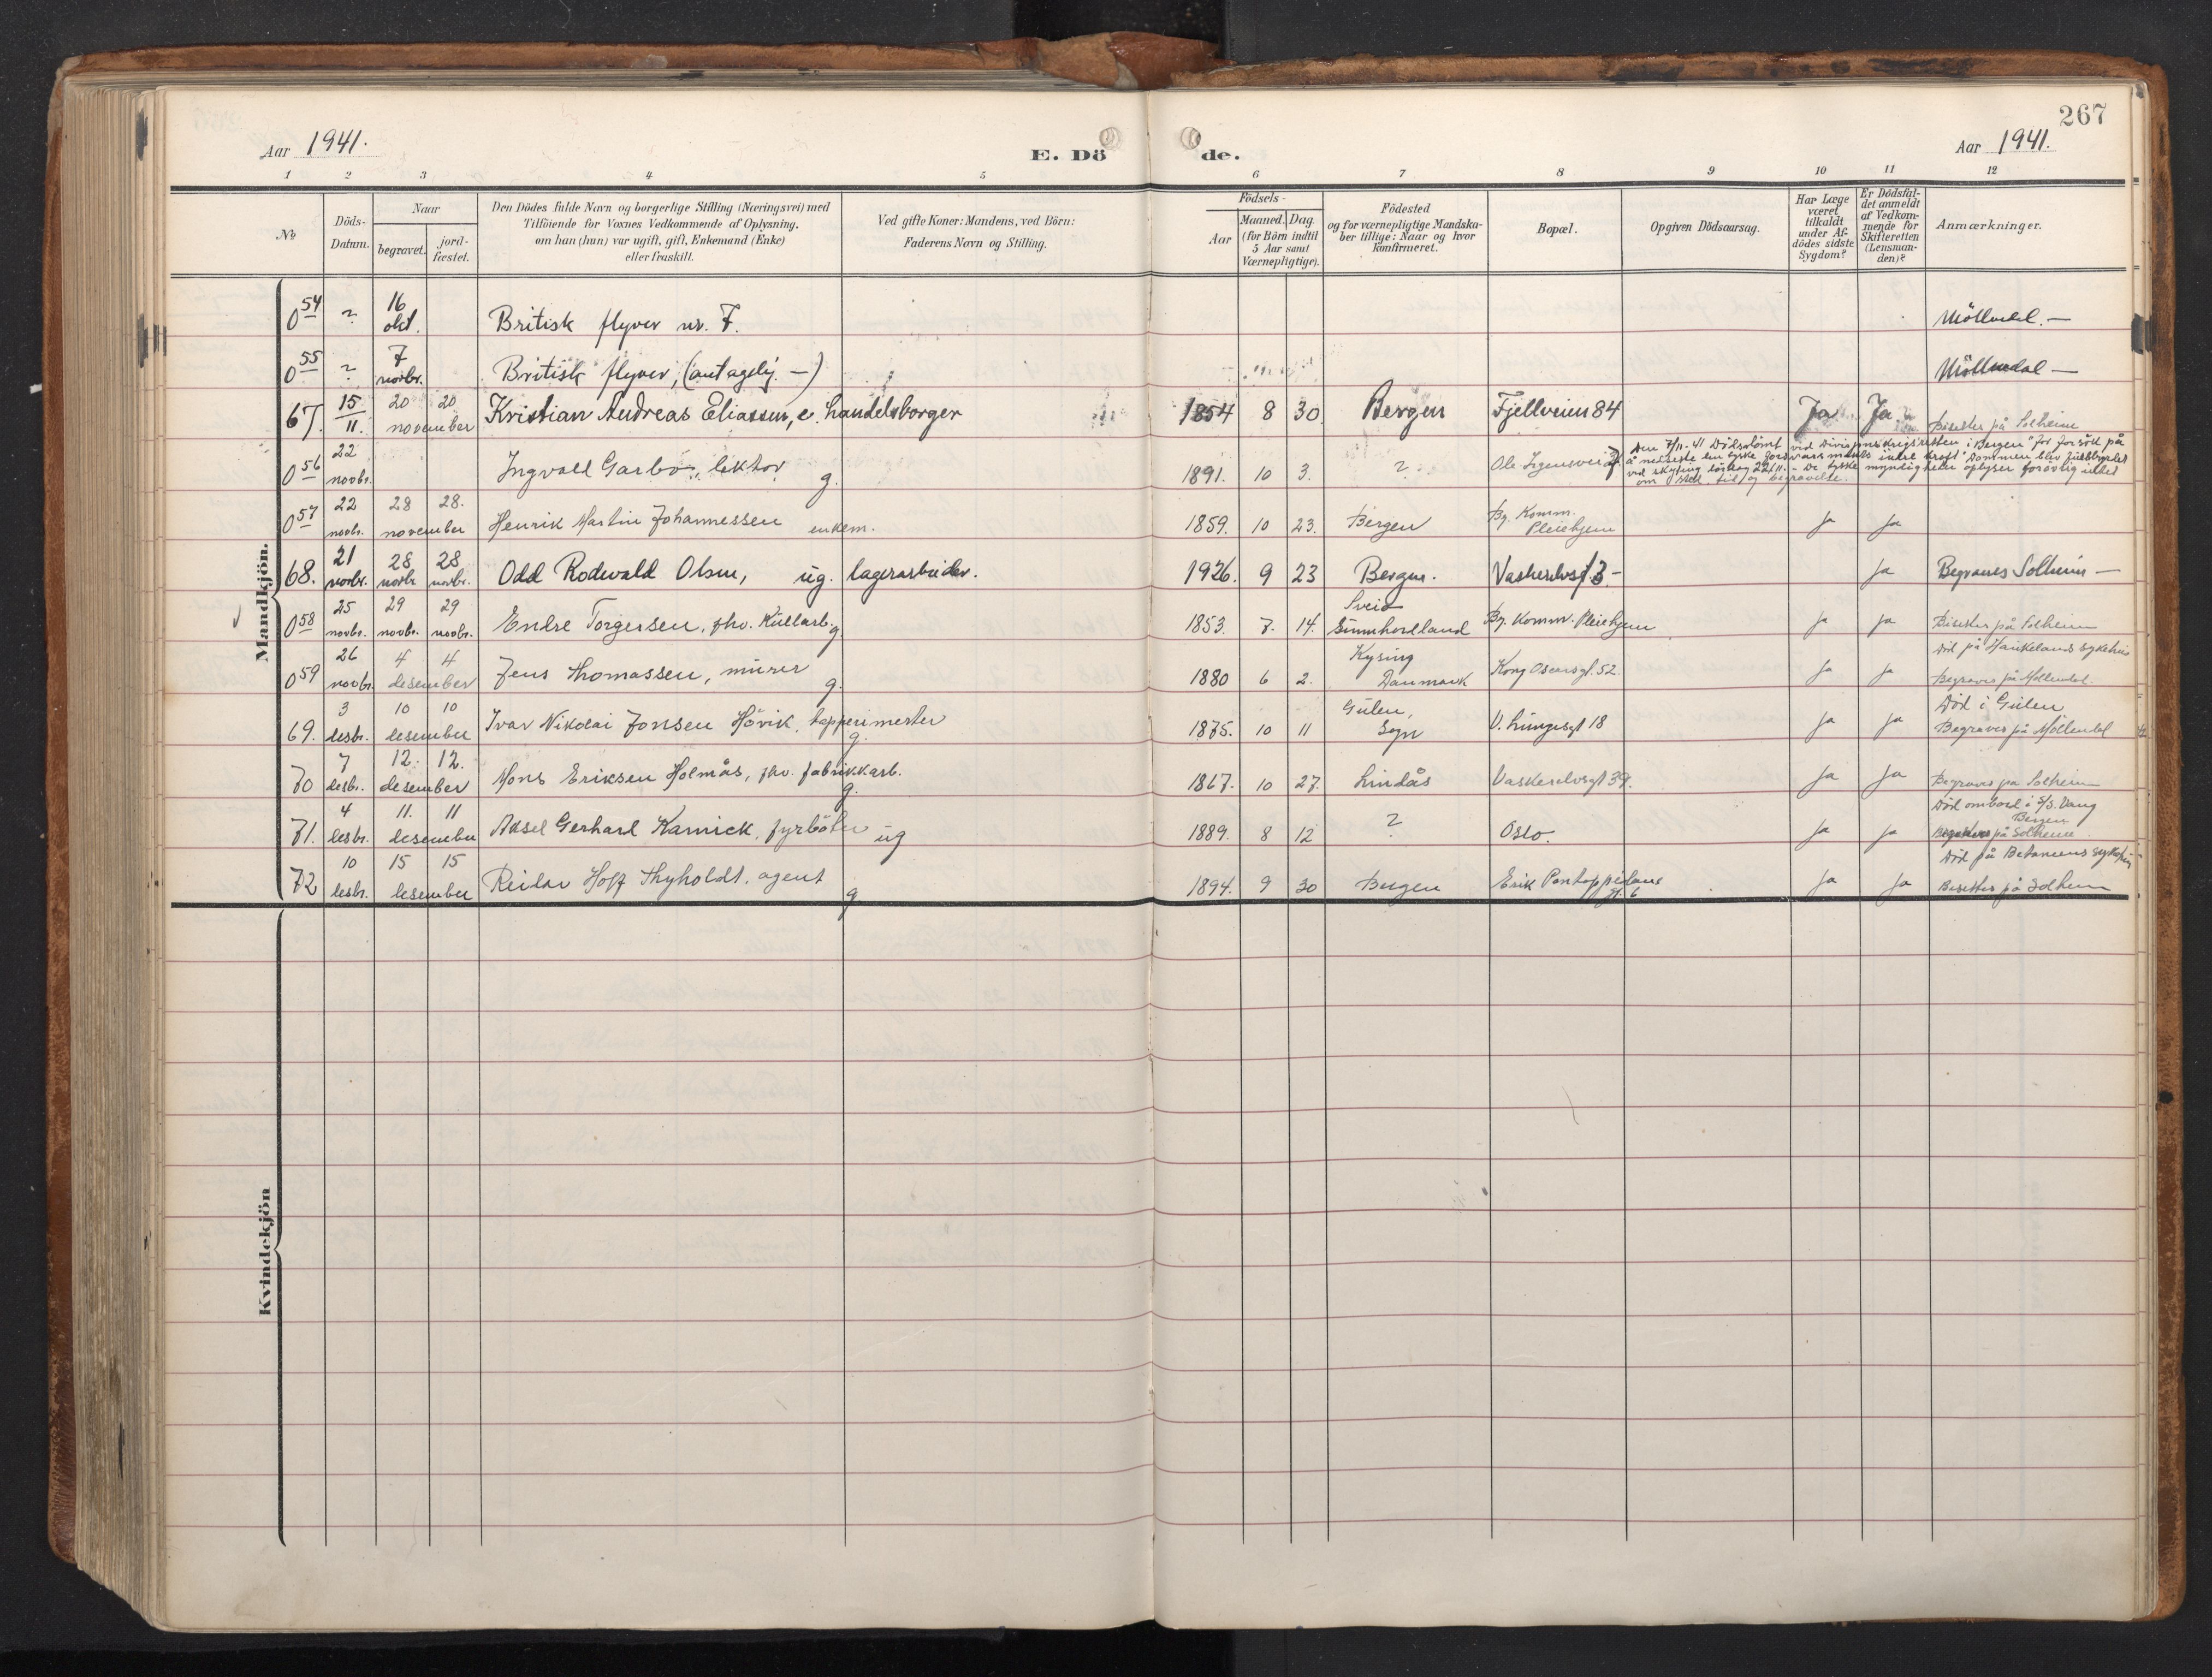 267
Aar 1941.
E. Dö de.
Aar 1941.
1 2 3 4 5 6 7 8 9 10 11 12
No
Döds-Datum.
Naar
begravet.
jord-fæstet.
Den Dödes fulde Navn og borgerlige Stilling (Næringsvei) med
Tilföiende for Voxnes Vedkommende af Oplysning,
om han (hun) var ugift, gift, Enkemand (Enke)
eller fraskilt.
Ved gifte Koner: Mandens, ved Börn:
Faderens Navn og Stilling.
Födsels-
Aar
Maaned. Dag.
(for Börn indtil
5 Aar samt
Værnepligtige).
Födested
og for værnepligtige Mandska-
ber tillige: Naar og hvor
konfirmeret.
Bopæl.
Opgiven Dödsaarsag.
Har Læge
været
tilkaldt
under Af-
dödes sidste
Sygdom?
Er Dödsfal-
det anmeldt
af Vedkom-
mende for
Skifteretten
(Lensman-
den)?
Anmærkninger.
Mandkjön.
054 ? 16 okt. Britisk flyver nr. 7. Möllendal. —
055 ? 7 novbr. Britisk flyver, (antagelig. —) Möllendal —
67. 15/11. 20 20 november Kristian Andreas Eliassen, e. handelsborger 1854 8 30 Bergen Fjellveien 84 Ja Ja Bisettes på Solheim
056 22 novbr. Ingvald Garbo, lektor g. 1891. 10 3. ? Ole Irgensvei
Den 7/11-41 Dödsdömt ved Divisjonskrigsretten i Bergen "for forsök på
å nedsette den tyske forsvarsmakts indre kraft" Dommen blev fullbyrdet
ved skyting lördag 22/11. - De tyske myndigheter oplyser forövrig intet
om sted, tid og begravelse.
057 22 novbr. 28 28. november Henrik Martin Johannessen enkem. 1859. 10 23. Bergen Bg. Komm. Pleiehjem ja ja
68. 21 novbr. 28 novbr 28 novbr. Odd Rodewald Olsen, ug. lagerarbeider. 1926. 9 23 Bergen. Vaskerelvsgt 3 - ja Begraves Solheim —
058 25 novbr. 29 novbr. 29 novbr. Endre Torgersen, fhv. Kullarb. g. 1853. 7. 14. Sveio Sunnhordland Bg. Komm. Pleiehjem ja ja Bisettes på Solheim
059 26 novbr. 4 4 desember Jens Thomassen, murer g. 1880 6 2. Kysing Danmark Kong Oscarsgt. 52. ja ja Död på Haukelands sykehus
Begraves på Möllendal.
69. 3 desbr. 10 10 desember Ivar Nikolai Jonsen Hövik, tapperimester g. 1875. 10 11 Gulen, Sogn V. Lungesgt 18 ja ja Död i Gulen
Begraves på Möllendal
70 7 desbr. 12. 12. desember Mons Eriksen Holmås, fhv. fabrikkarb. g. 1867. 10 27. Lindås Vaskerelvsgt 39. ja ja Begraves på Solheim
71. 4 desbr. 11. 11 desember Aksel Gerhard Karnick, fyrböter ug 1889. 8 12 ? Oslo. ja ja Död ombord i S/S. Vang
Bergen
på Solheim.
72 10 desbr. 15 15 desember Reidar Hoff Thyholdt, agent g 1894. 9 30 Bergen Erik Pontoppidans gt. 6 ja ja Död på Betaniens sykehus
Bisettes på Solheim
Kvindekjön